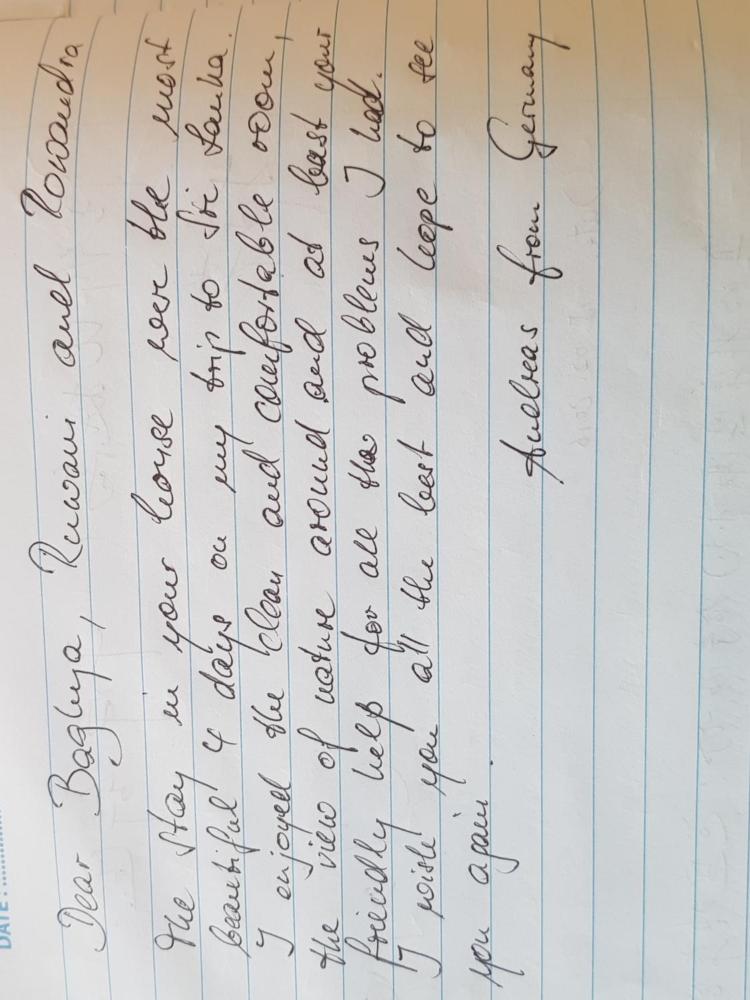 DATE : ............
Dear Baghya, Ruwani and Rowandra
The stay in your house were the most
beautiful 4 days on my trip to Sri Lanka.
I enjoyed the clean and comfortable room,
the view of nature around and at least your
friendly help for all the problems I had.
I wish you all the best and hope to see
you again.
Andreas from Germany